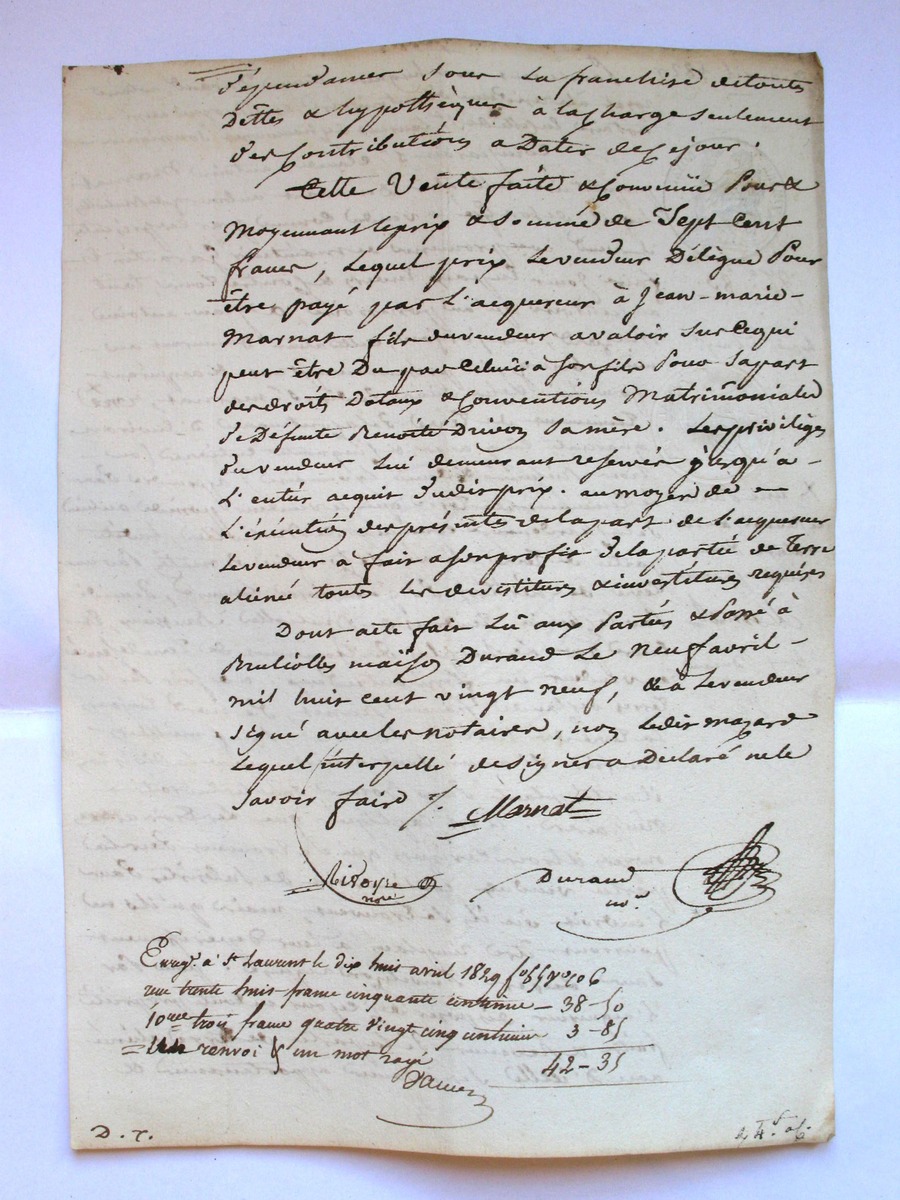 dépendances sous la franchise de touts
Dettes & hypothèques à la Charge seulement
des Contributions a Dater de Ce jour.
Cette Vente faite & Convenüe Pour &
Moyennant le prix & Somme de Sept Cent
francs, lequel prix le vendeur Délègue Pour
être payé par l'acquereur à Jean-marie-
Marnat fils du vendeur a valoir sur Ce qui
peut être Du par Celui ci à Son fils Pour Sa part
des droits Dotaux & Conventions Matrimoniales
de Défunte Benoite Drivon Sa mère. Les privilèges
du vendeur lui demeurant reservés jusqu'a-
l'entier acquit dudit prix. au moyen de -
l'éxécution des présentes de la part de l'acquereur
le vendeur à fait a son profit de la partie de Terre
aliéné touts les devestitures & investitures requises
Dont acte fait Lû aux Parties & Passé à
Bruliolles maison Durand Le Neuf avril-
mil huit cent vingt neuf, & a le vendeur
Signé avec les notaires, non ledit mazard
lequel interpellé de signer a Déclaré ne le
Savoir faire /. Marnat
Durand
nre.
Enregé. à St. Laurent le dix huit avril 1829 fo
reçu trente huit francs cinquante centimes - 38-50
10eme trois francs quatre vingt cinq centimes 3-85
Un renvoi & un mot rayé 42-35
D. r.